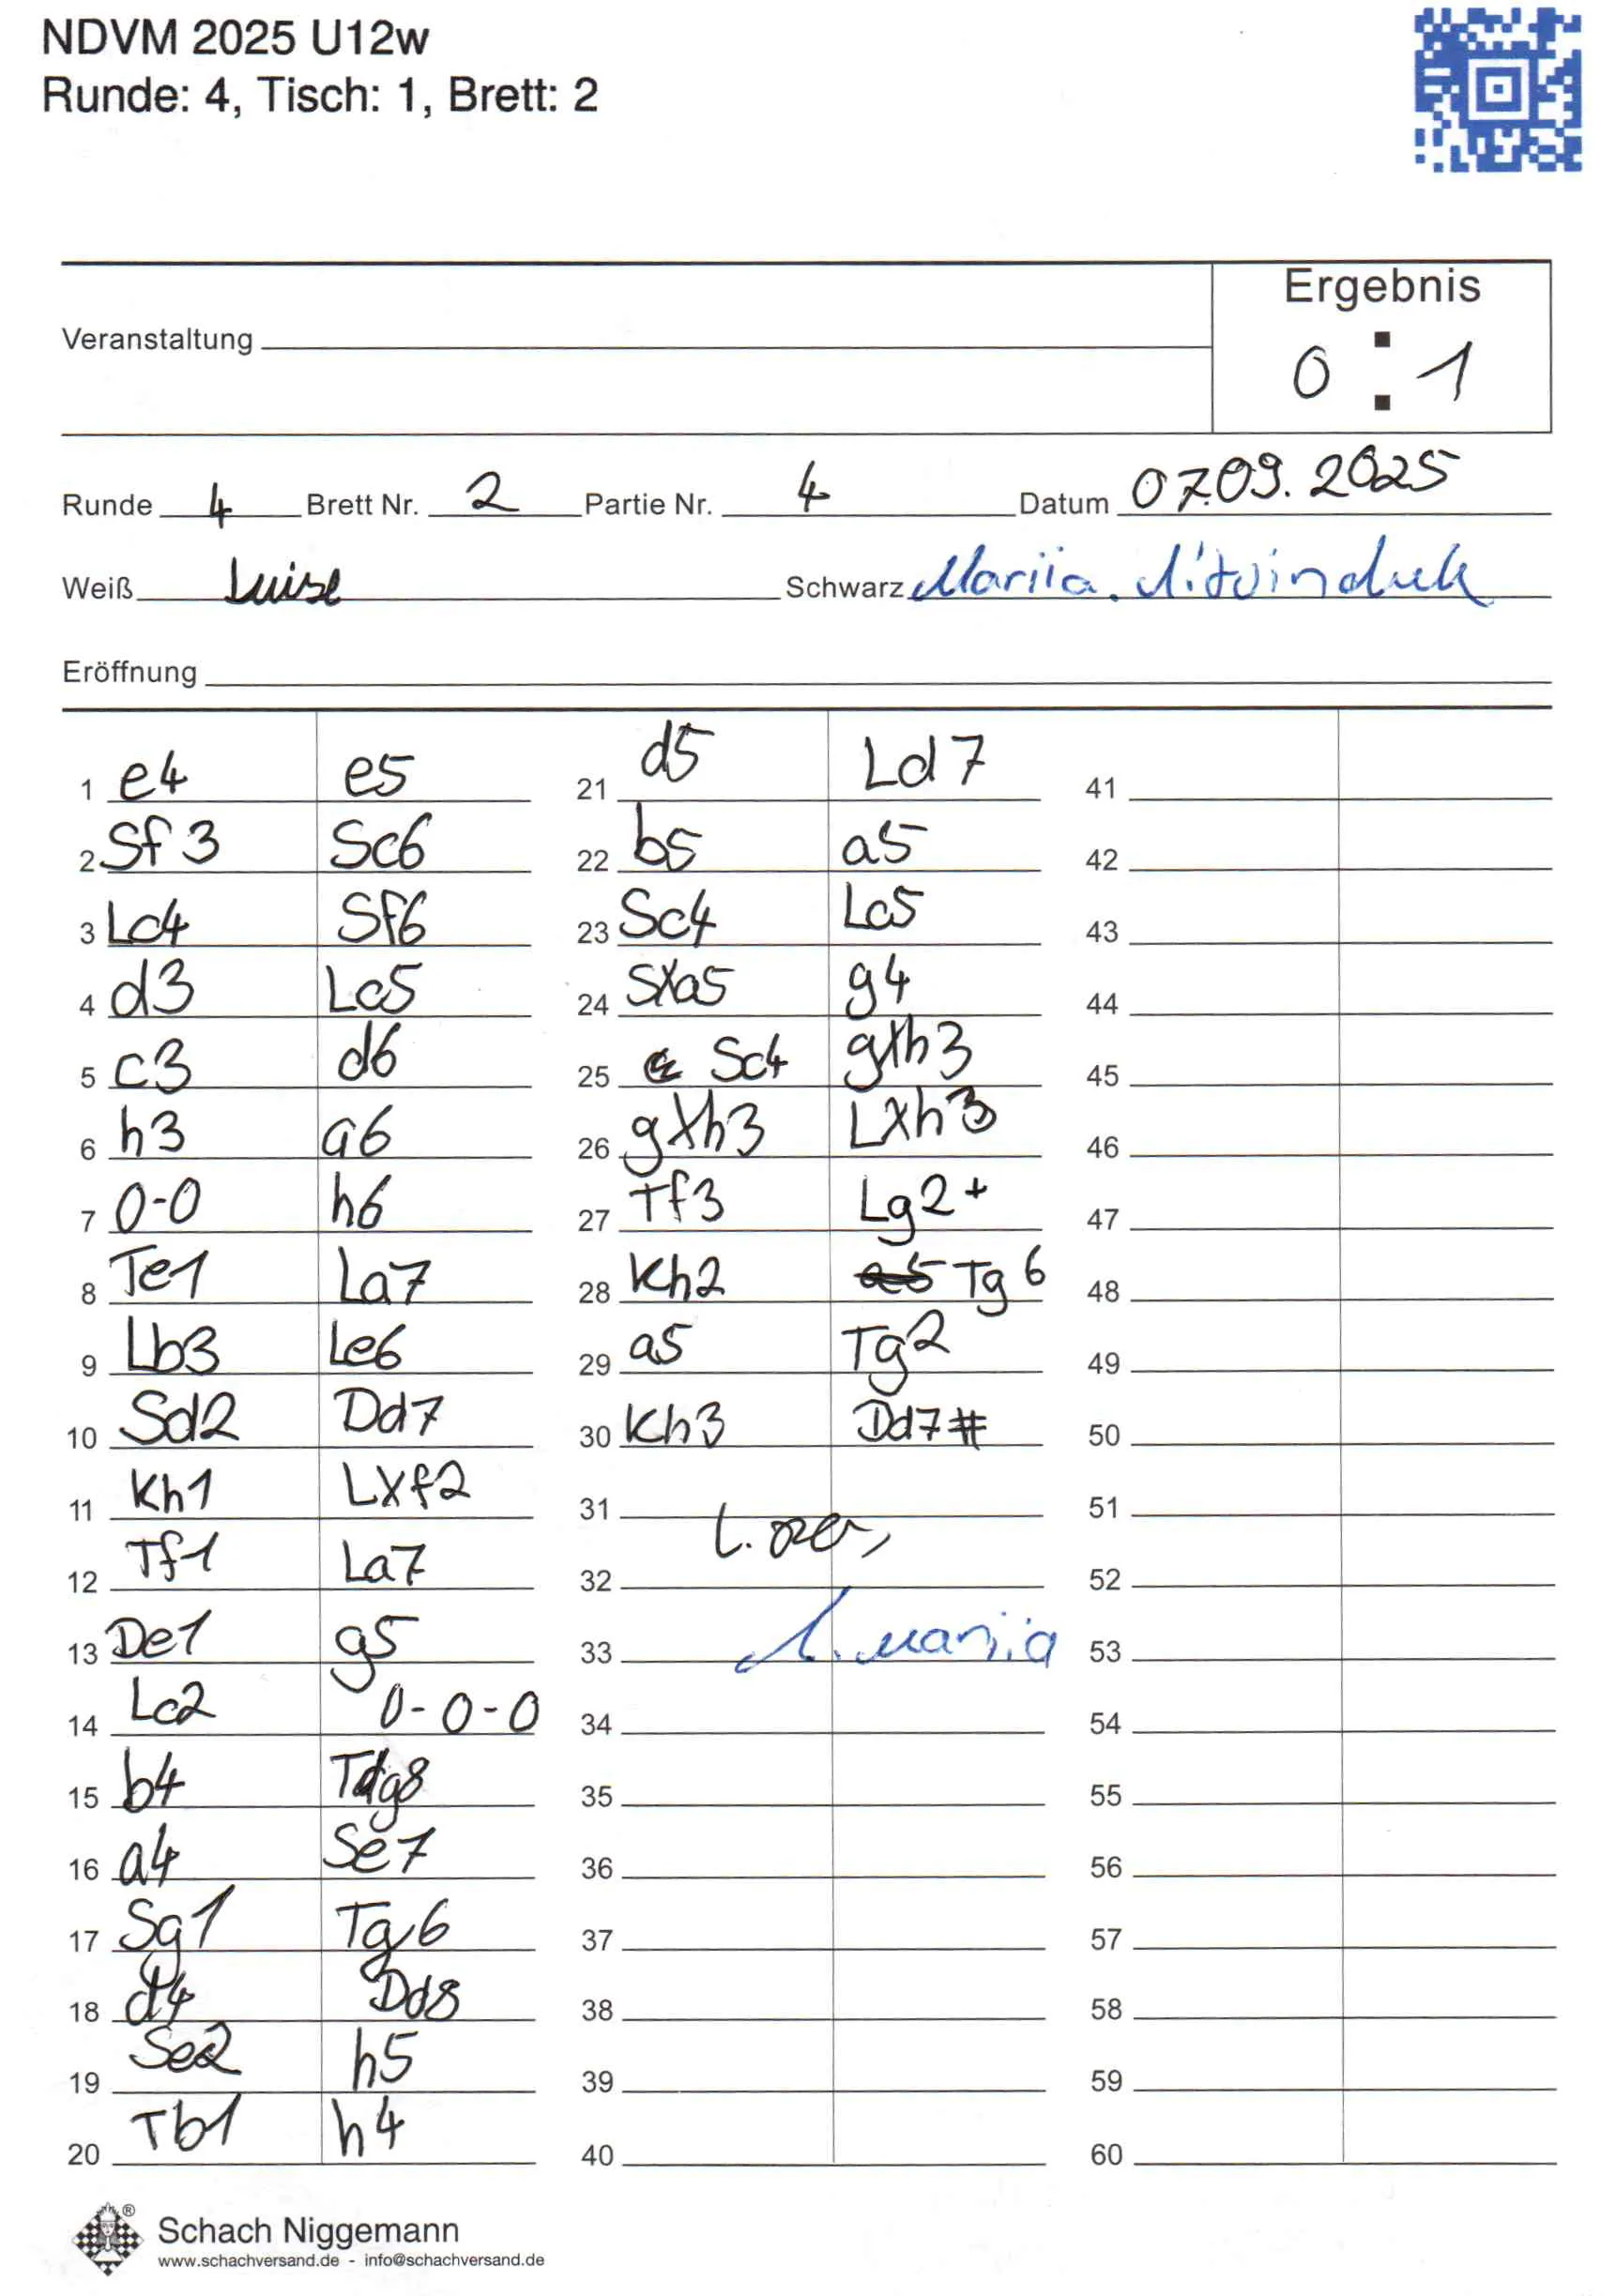 NDVM 2025 U12w
Runde: 4, Tisch: 1, Brett: 2
Ergebnis
Veranstaltung
0 : 1
Runde 4 Brett Nr. 2 Partie Nr. 4 Datum 07.09.2025
Weiß Luise Schwarz Mariia
Eröffnung
1 e4 e5
2 Sf3 Sc6
3 Lc4 Sf6
4 d3 Lc5
5 c3 d6
6 h3 a6
7 0-0 h6
8 Te1 La7
9 Lb3 Le6
10 Sd2 Dd7
11 Kh1 LXf2
12 Tf1 La7
13 De1 g5
14 Lc2 0-0-0
15 b4 Tdg8
16 a4 Se7
17 Sg1 Tg6
18 d4 Dd8
19 Se2 h5
20 Tb1 h4
21 d5 Ld7
22 b5 a5
23 Sc4 Lc5
24 SXa5 g4
25 Sc4 gXh3
26 gXh3 LXh3
27 Tf3 Lg2+
28 Kh2 Tg6
29 a5 Tg2
30 Kh3 Dd7#
31
32
33 Mariia
34
35
36
37
38
39
40
41
42
43
44
45
46
47
48
49
50
51
52
53
54
55
56
57
58
59
60
Schach Niggemann
www.schachversand.de - info@schachversand.de